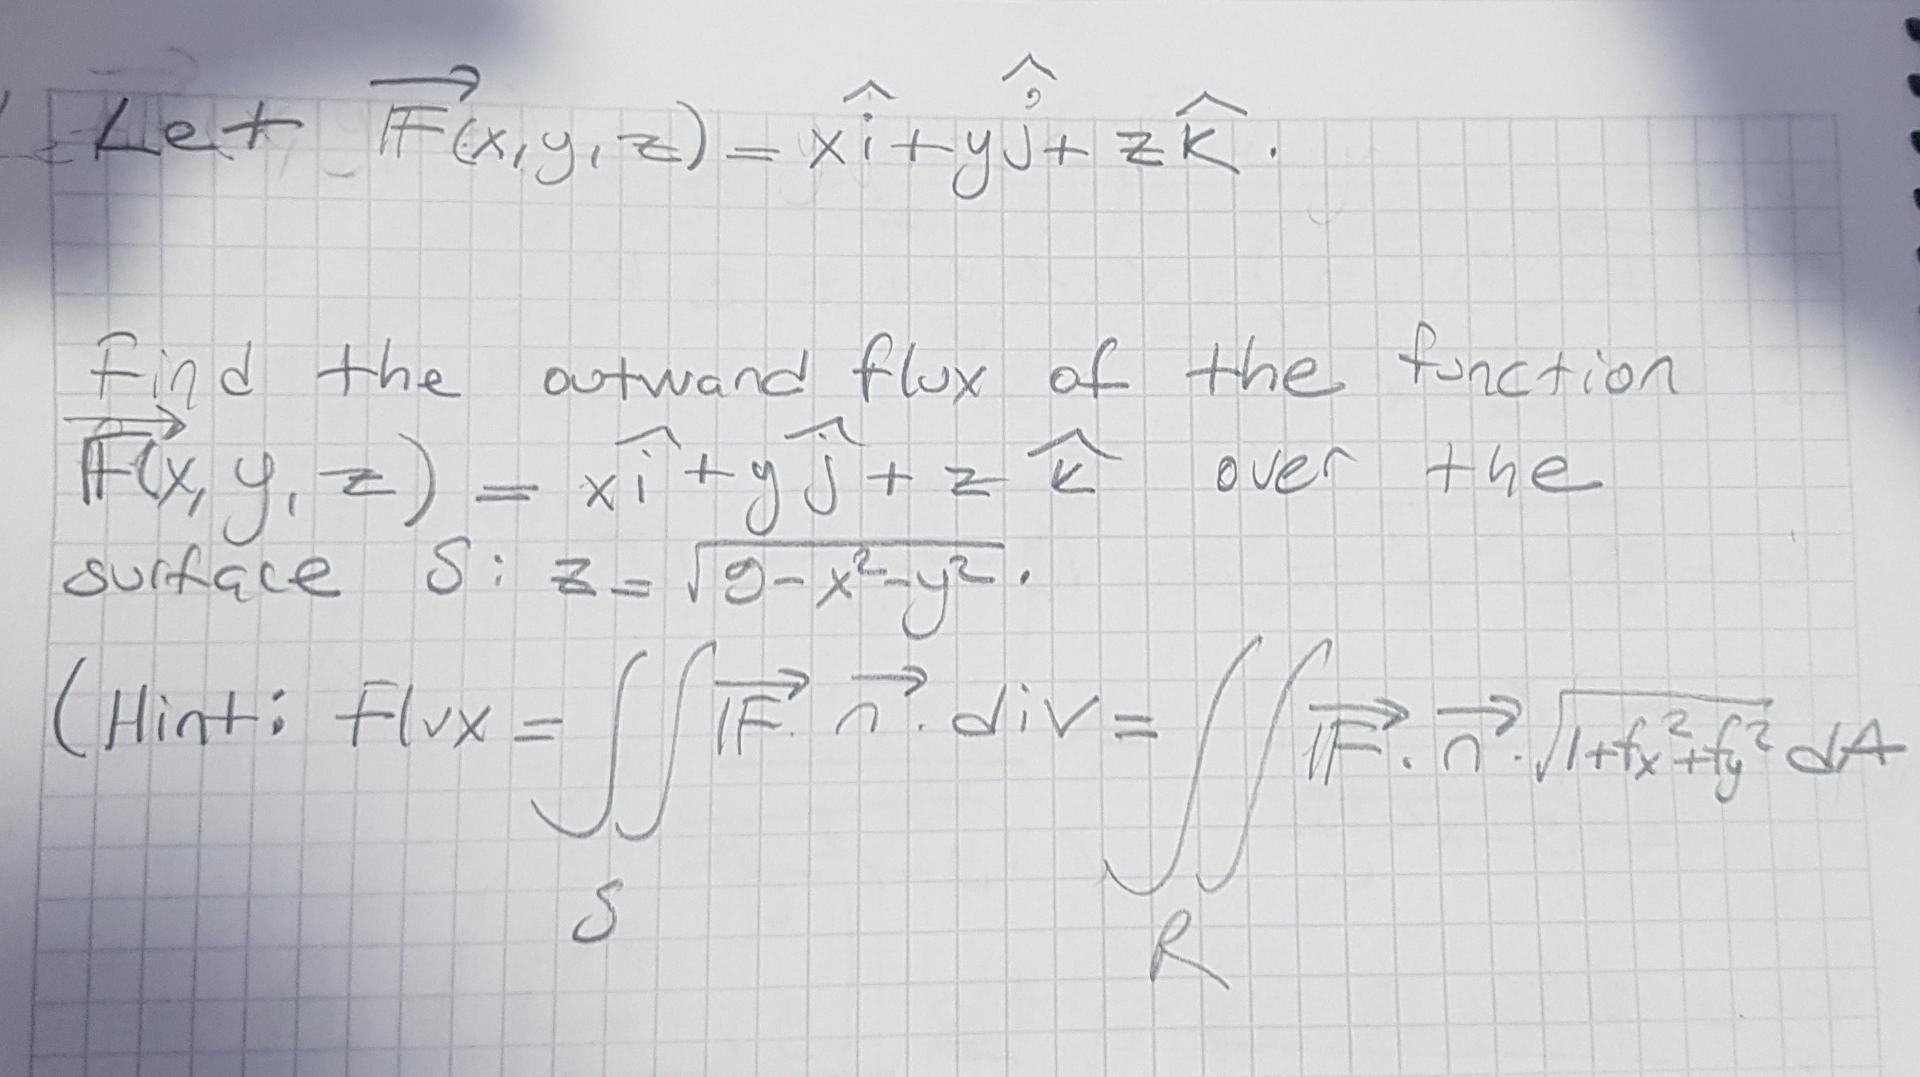 Let F⃗(x,y,z) = xî+yĵ+zk̂.
Find the outward flux of the function
F⃗(x,y,z) = xî+yĵ+zk̂ over the
surface S: z=√(9-x²-y²).
(Hint: Flux = ∬_S F⃗.n⃗.div = ∬_R F⃗.n⃗.√(1+fx²+fy²) dA